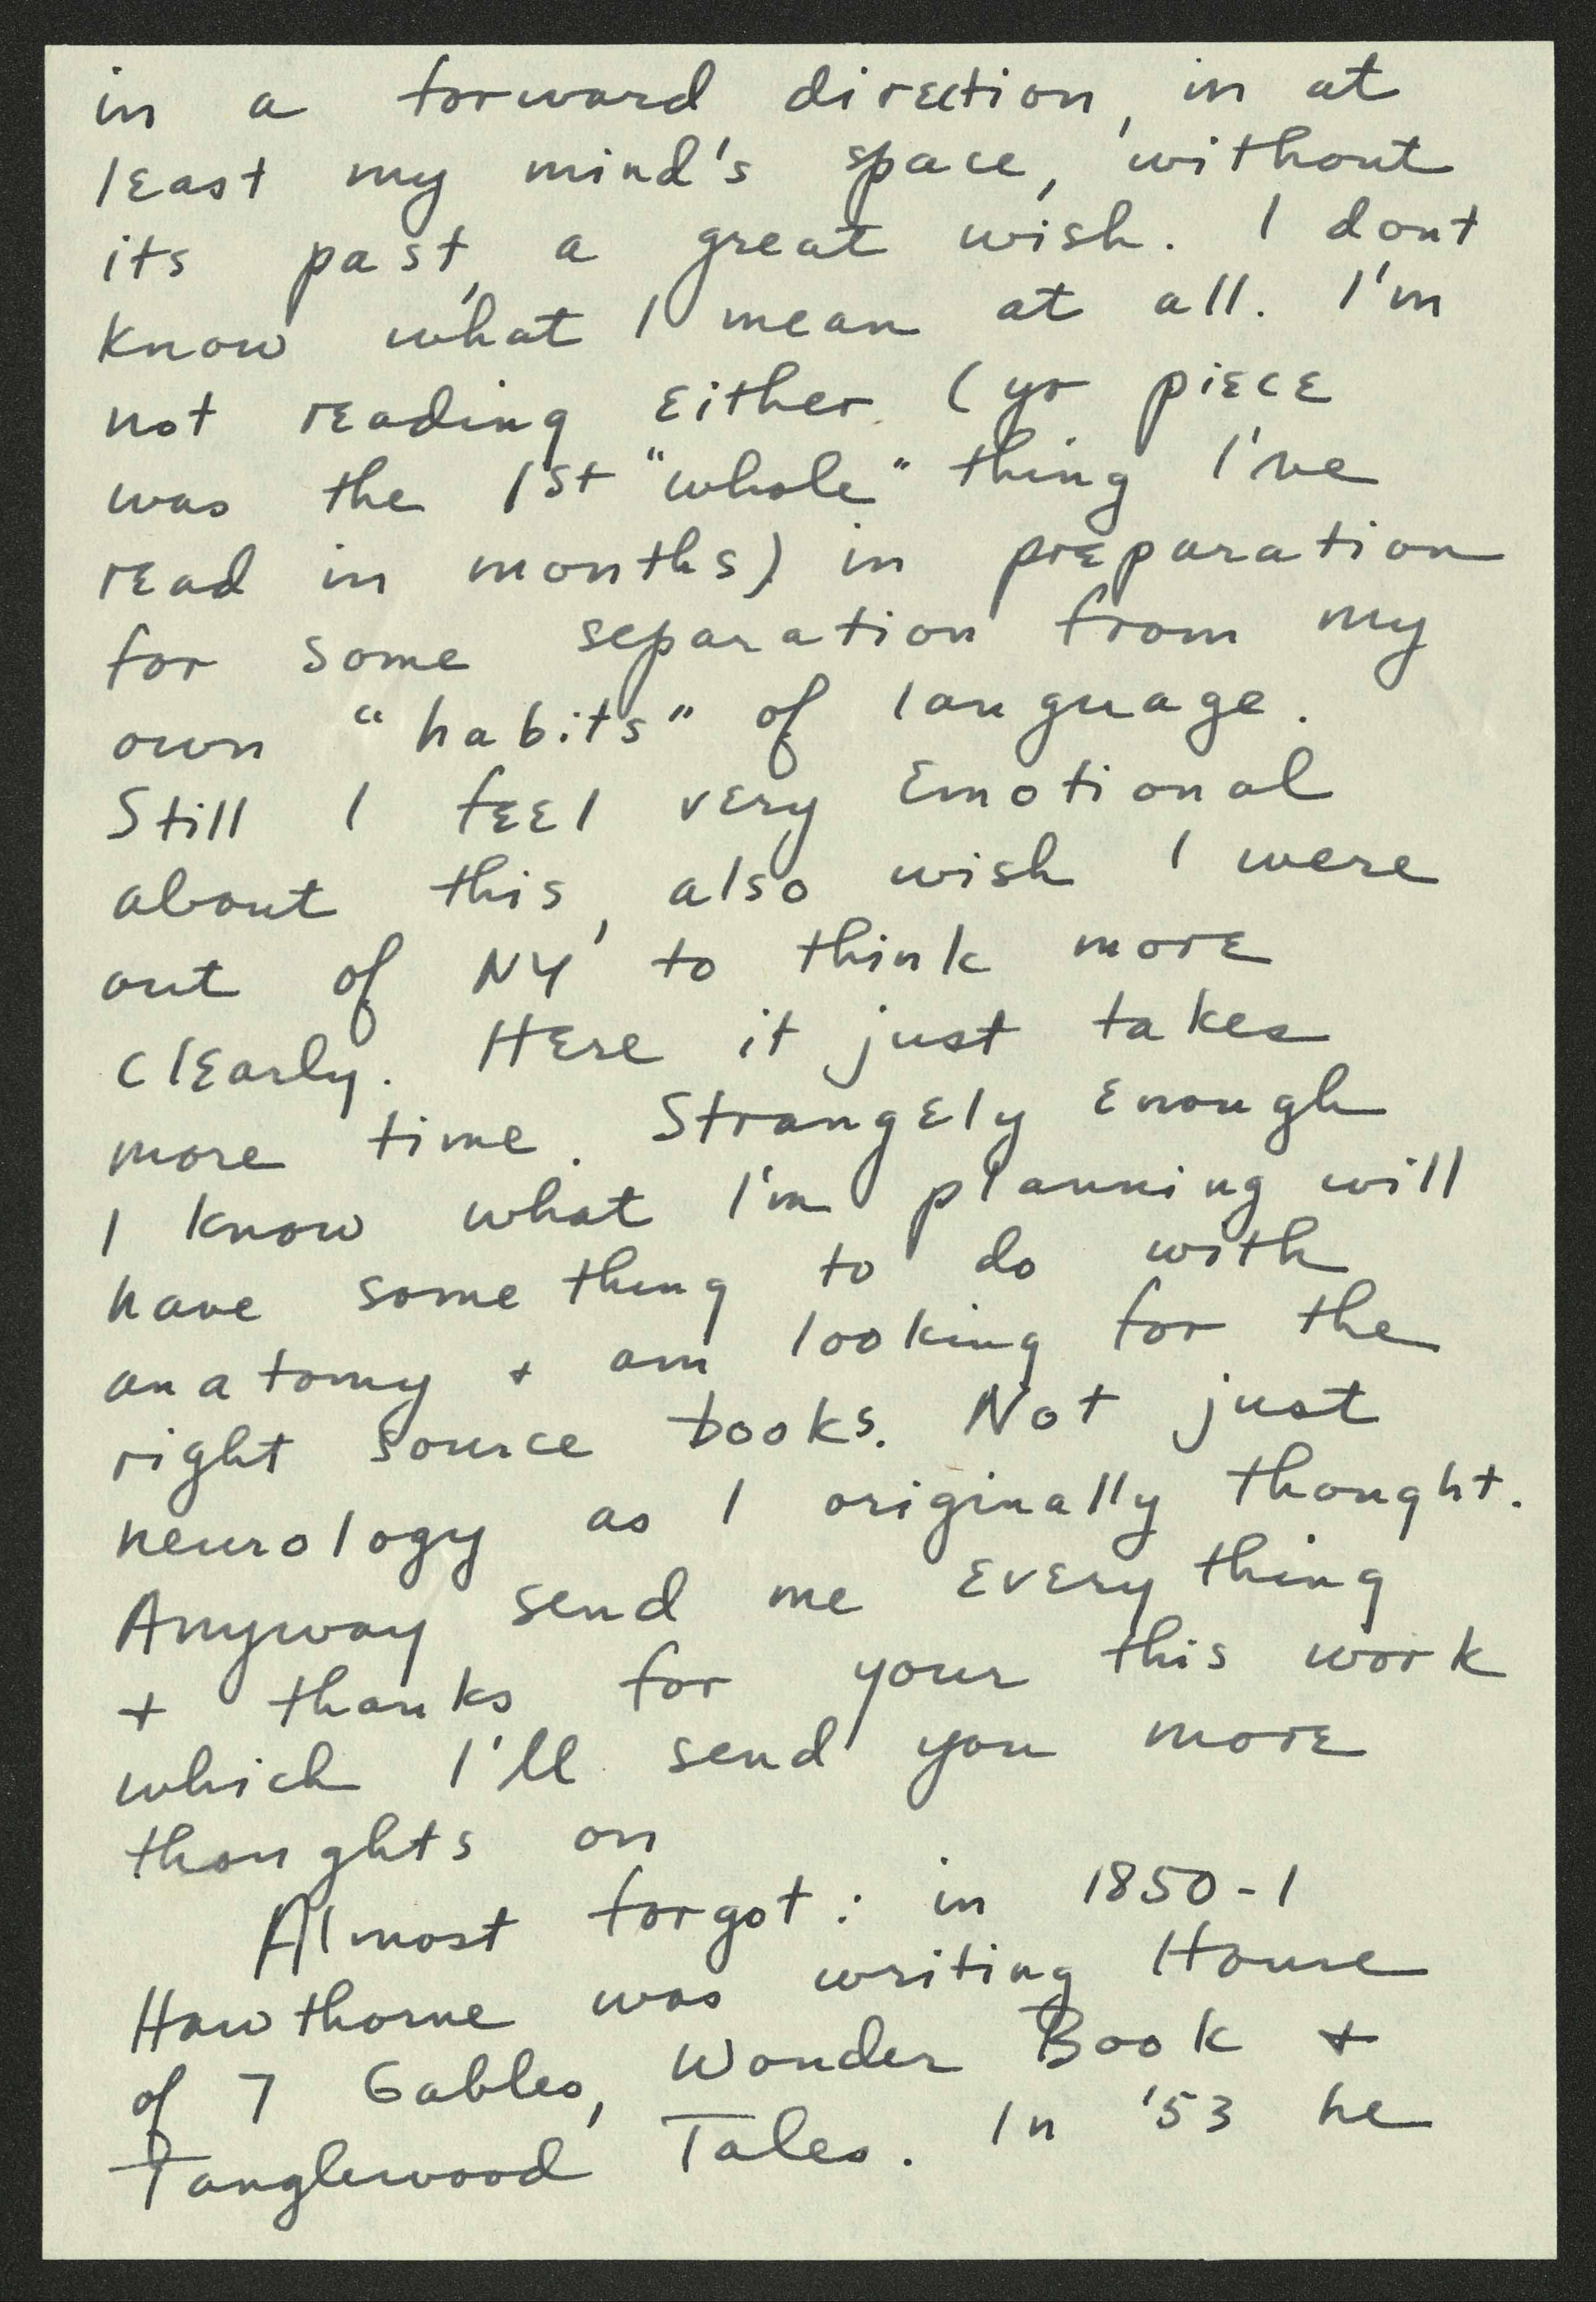 in a forward direction, in at
least my mind's space, without
its past, a great wish. I dont
know what I mean at all. I'm
not reading either (yr piece
was the 1st "whole" thing I've
read in months) in preparation
for some separation from my
own "habits" of language.
Still I feel very emotional
about this, also wish I were
out of NY to think more
clearly. Here it just takes
more time. Strangely enough
I know what I'm planning will
have something to do with
anatomy + am looking for the
right source books. Not just
neurology as I originally thought.
Anyway send me everything
+ thanks for your this work
which I'll send you more
thoughts on
Almost forgot: in 1850-1
Hawthorne was writing House
of 7 Gables, Wonder Book +
Tanglewood Tales. In '53 he